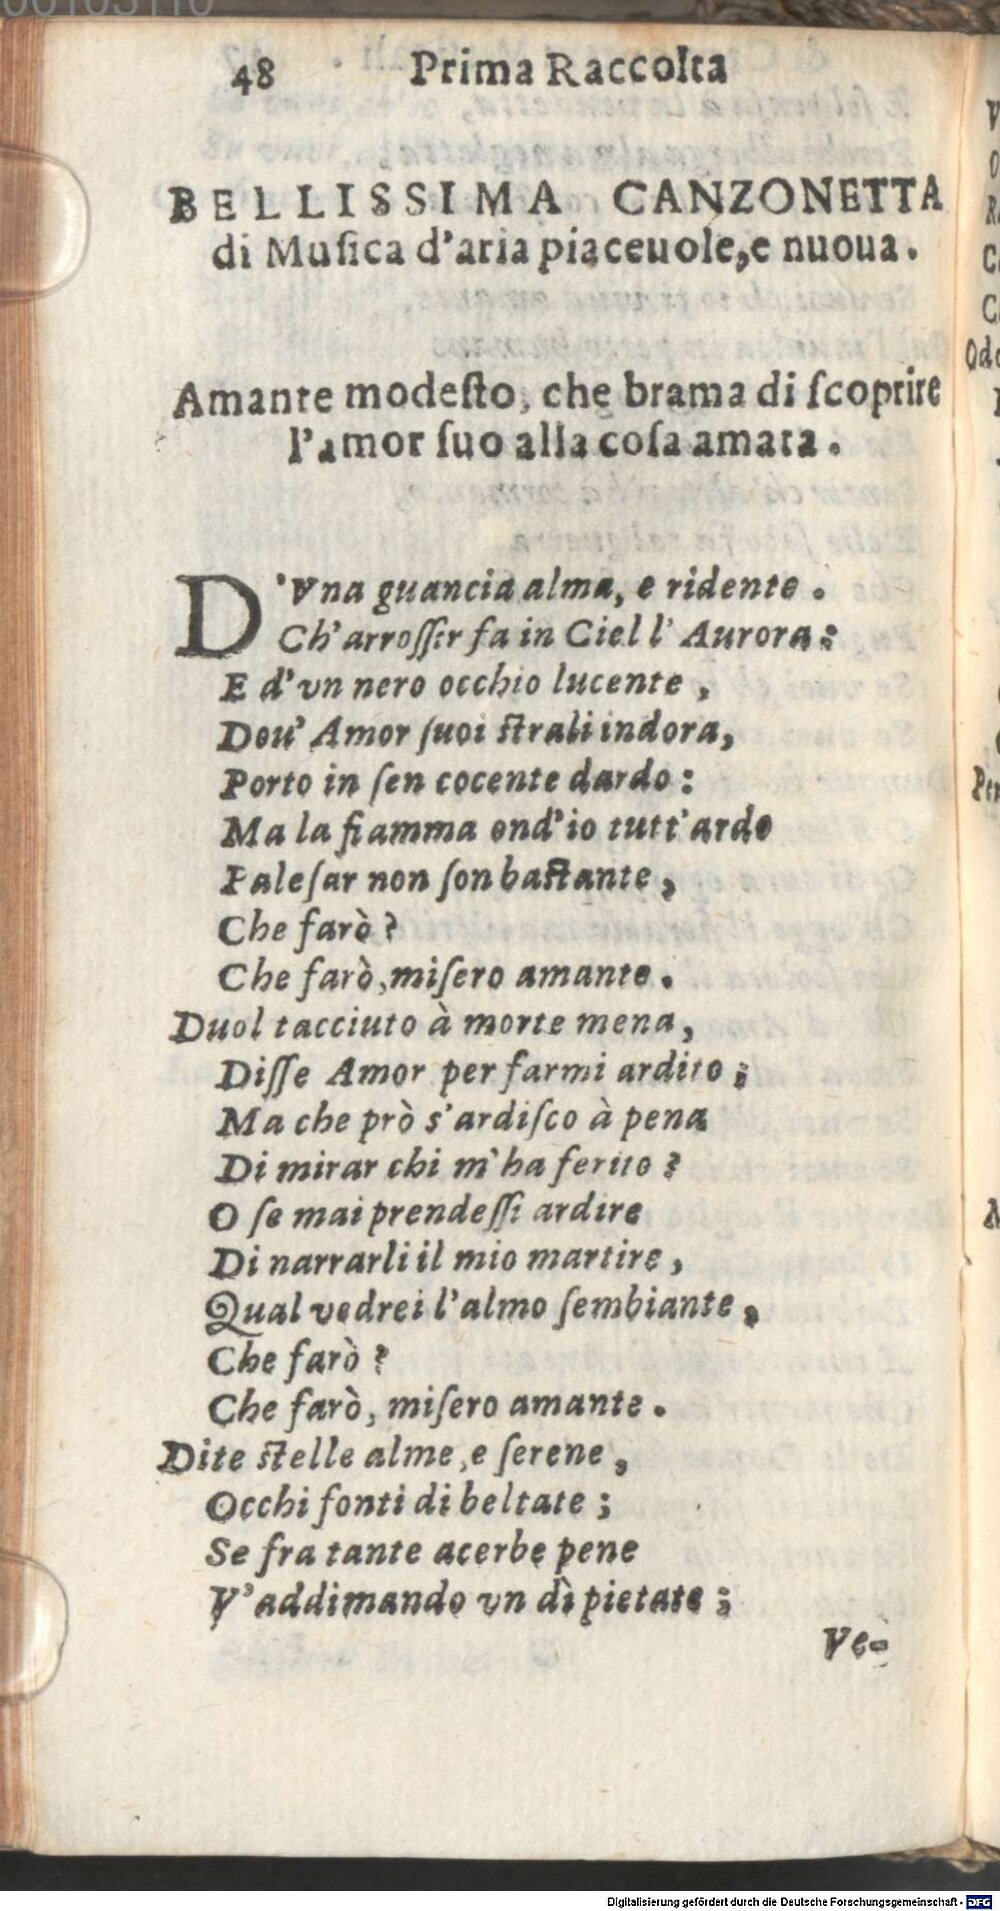 48 Prima Raccolta
BELLISSIMA CANZONETTA
di Muſica d'aria piaceuole, e nuoua.
Amante modeſto, che brama di ſcoprire
l'amor ſuo alla coſa amata.
D'Vna guancia alma, e ridente.
Ch'arroſſir fa in Ciel l'Aurora:
E d'vn nero occhio lucente,
Dou' Amor ſuoi ſtrali indora,
Porto in ſen cocente dardo:
Ma la fiamma ond'io tutt'ardo
Paleſar non ſon baſtante,
Che farò?
Che farò, miſero amante.
Duol tacciuto à morte mena,
Diſſe Amor per farmi ardito;
Ma che prò s'ardiſco à pena
Di mirar chi m'ha ferito?
O ſe mai prendeſſi ardire
Di narrarli il mio martire,
Qual vedrei l'almo ſembiante,
Che farò?
Che farò, miſero amante.
Dite ſtelle alme, e ſerene,
Occhi fonti di beltate;
Se fra tante acerbe pene
V'addimando vn dì pietate;
Ve-
Digitalisierung gefördert durch die Deutsche Forschungsgemeinschaft - DFG